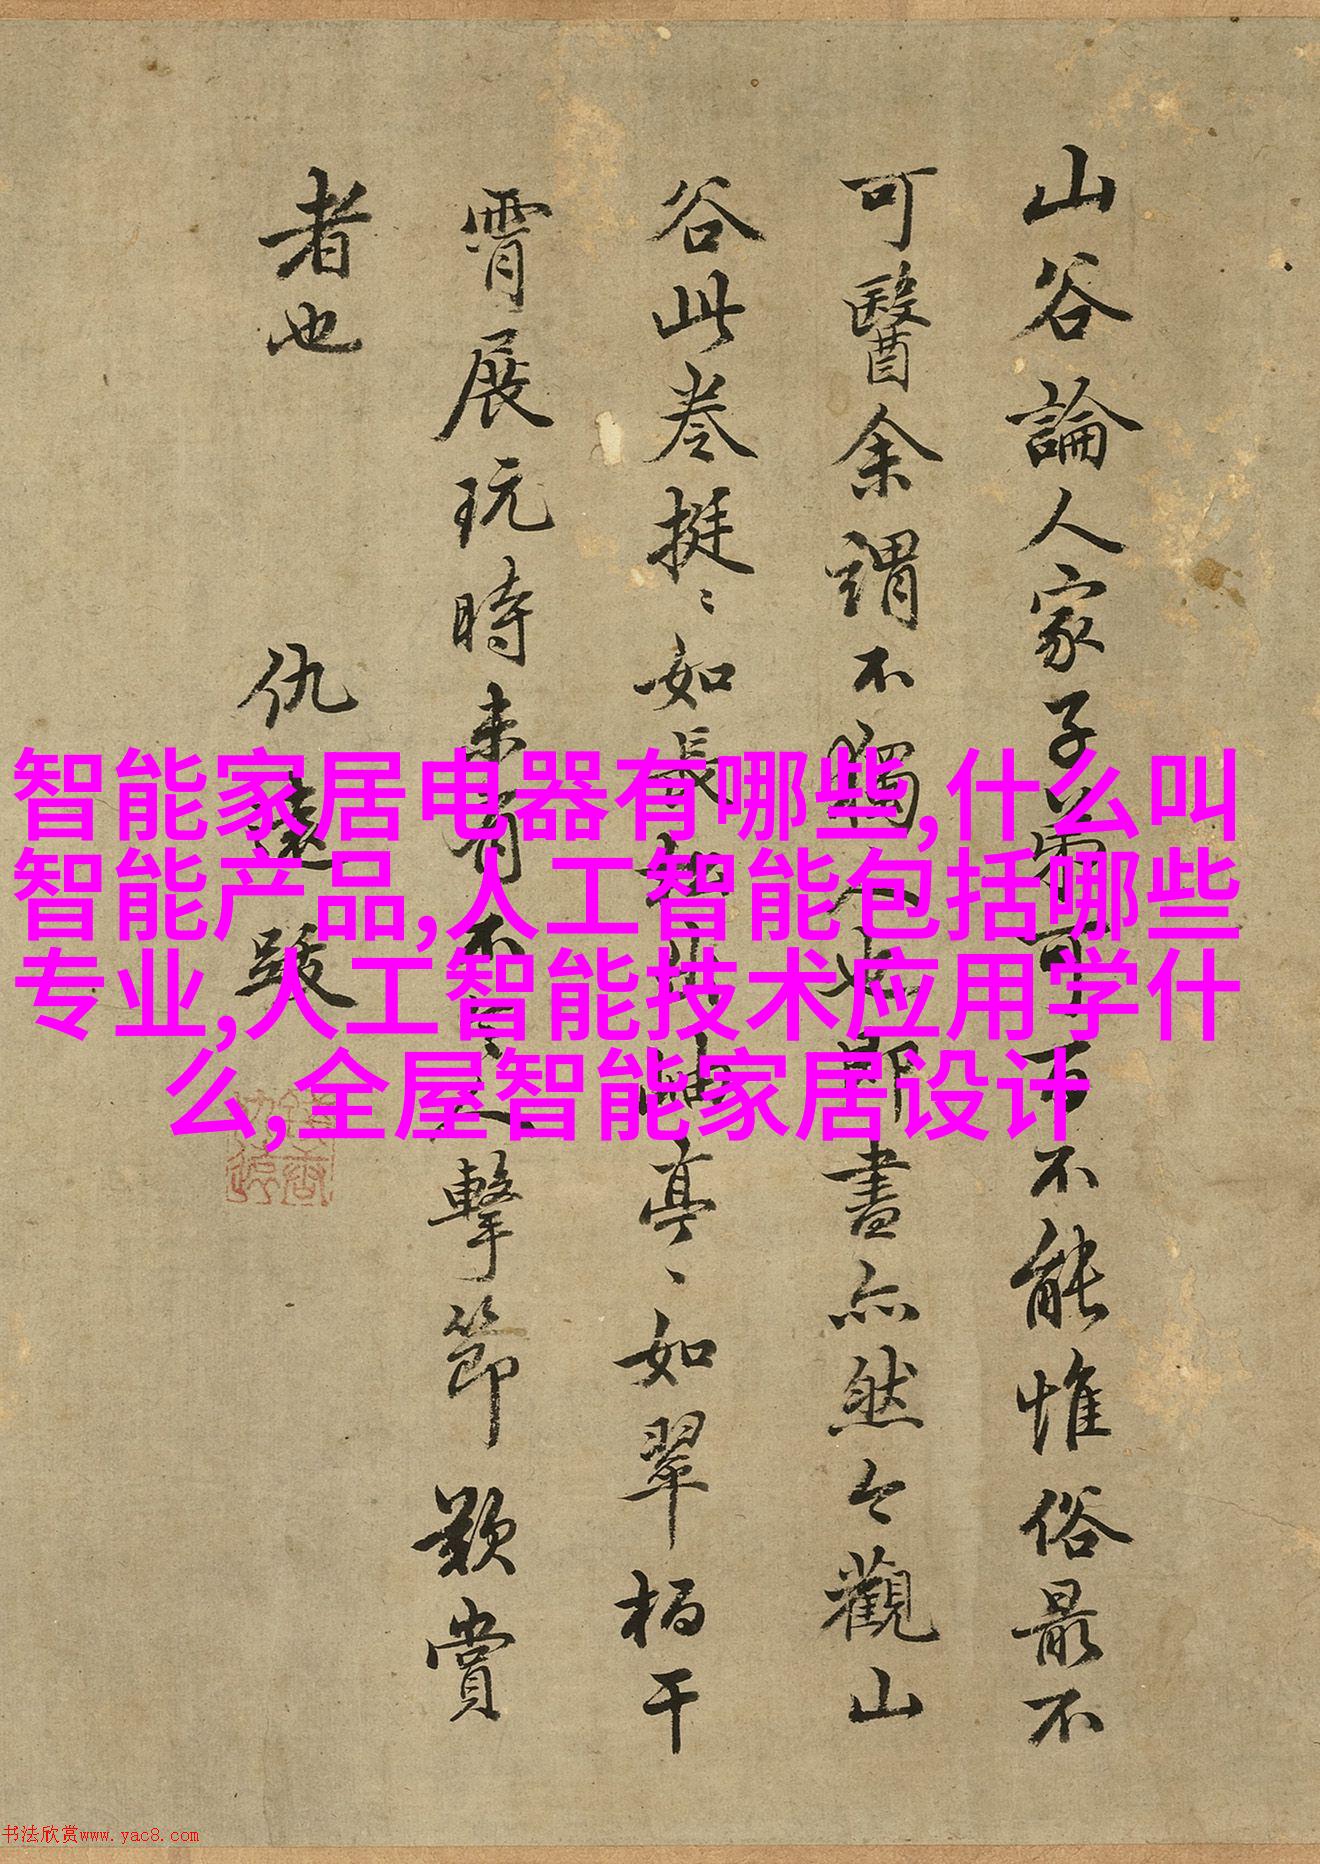 山谷論人家子弟可百不能惟俗最不
可醫余謂不獨人也即書亦然今觀山
谷此卷挺〻如長松出岫亭〻如翠柏干
霄展玩時未有不令人擊節歎賞
者也
仇遠跋
智能家居电器有哪些,什么叫
智能产品,人工智能包括哪些
专业,人工智能技术应用学什
么,全屋智能家居设计
书法欣赏www.yac8.com